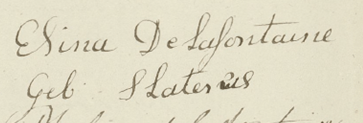 Elsina DeLafontaine
Geb Slaterus